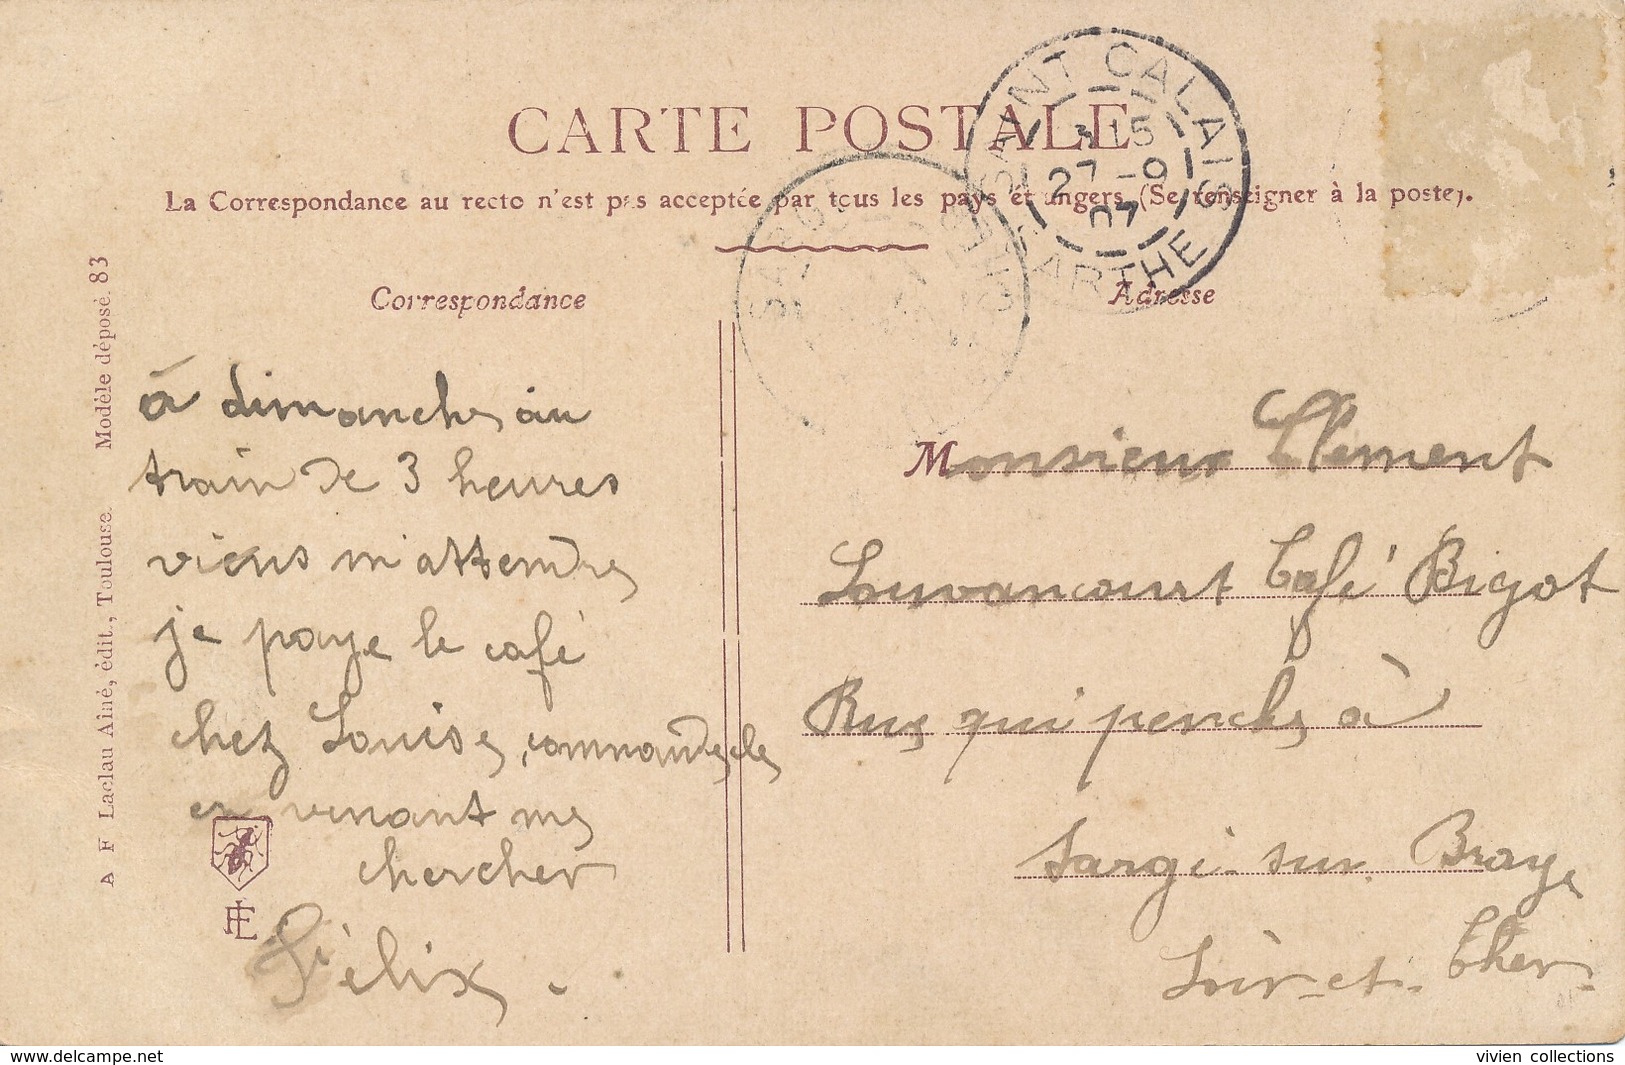 CARTE POSTALE
La Correspondance au recto n'est pas acceptée par tous les pays étrangers (Se renseigner à la poste).
SAINT CALAIS
3 15
27 -9
07
SARTHE
SARGÉ
Correspondance
Adresse
à dimanche au
train de 3 heures
viens m'attendre
je paye le café
chez Louise, commande le
en venant me
chercher
Félix.
Monsieur Clément
Louvancourt Café Bigot
Rue qui penche à
Sargé-sur-Braye
Loir-et-Cher
A F Laclau Ainé, édit., Toulouse. Modèle déposé. 83
www.delcampe.net
vivien collections